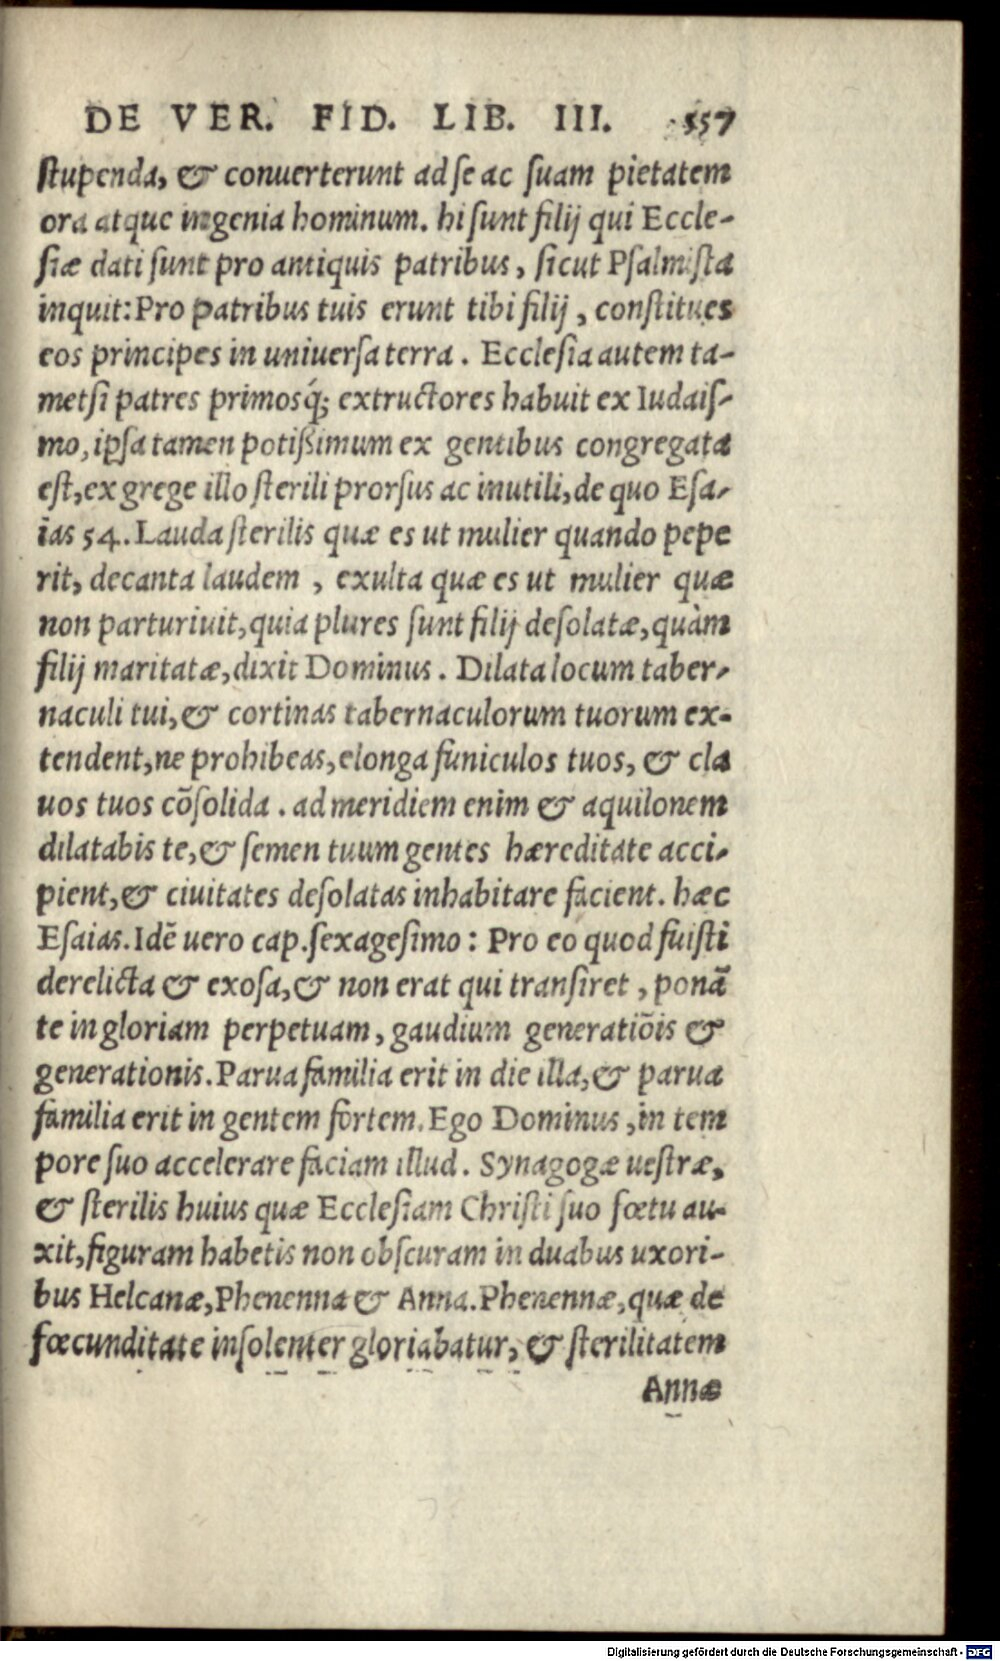 DE VER. FID. LIB. III. 557
ſtupenda, & conuerterunt ad ſe ac ſuam pietatem
ora atque ingenia hominum. hi ſunt filij qui Eccle-
ſiæ dati ſunt pro antiquis patribus, ſicut Pſalmiſta
inquit: Pro patribus tuis erunt tibi filij, conſtitues
eos principes in uniuerſa terra. Eccleſia autem ta-
metſi patres primosq́; extructores habuit ex Iudaiſ-
mo, ipſa tamen potiſsimum ex gentibus congregata
eſt, ex grege illo ſterili prorſus ac inutili, de quo Eſa-
ias 54. Lauda ſterilis quæ es ut mulier quando pepe
rit, decanta laudem, exulta quæ es ut mulier quæ
non parturiuit, quia plures ſunt filij deſolatæ, quàm
filij maritatæ, dixit Dominus. Dilata locum taber-
naculi tui, & cortinas tabernaculorum tuorum ex-
tendent, ne prohibeas, elonga funiculos tuos, & cla
uos tuos cõſolida. ad meridiem enim & aquilonem
dilatabis te, & ſemen tuum gentes hæreditate acci-
pient, & ciuitates deſolatas inhabitare facient. hæc
Eſaias. Idẽ uero cap. ſexageſimo: Pro eo quod fuiſti
derelicta & exoſa, & non erat qui tranſiret, ponã
te in gloriam perpetuam, gaudium generatiõis &
generationis. Parua familia erit in die illa, & parua
familia erit in gentem fortem. Ego Dominus, in tem
pore ſuo accelerare faciam illud. Synagogæ ueſtræ,
& ſterilis huius quæ Eccleſiam Chriſti ſuo fœtu au-
xit, figuram habetis non obſcuram in duabus uxori-
bus Helcanæ, Phenenna & Anna. Phenennæ, quæ de
fœcunditate inſolenter gloriabatur, & ſterilitatem
Annæ
Digitalisierung gefördert durch die Deutsche Forschungsgemeinschaft - DFG